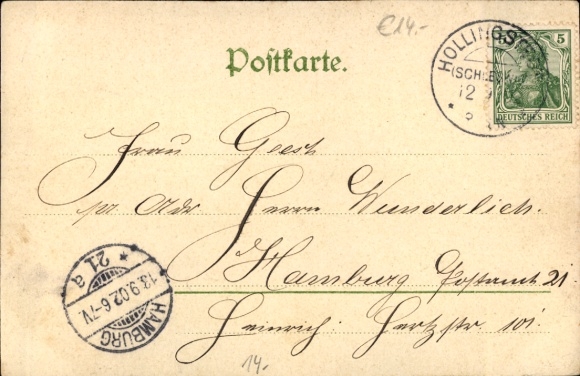 €14.-
Postkarte.
HOLLINGST
(SCHLESW
12 9
5
DEUTSCHES REICH
Frau Geest
pr Adr Herrn Wunderlich.
Hamburg Postamt 21.
Heinrich: Hertzstr 101.
HAMBURG
13.9.02.6-7V.
* 21 a
14.-